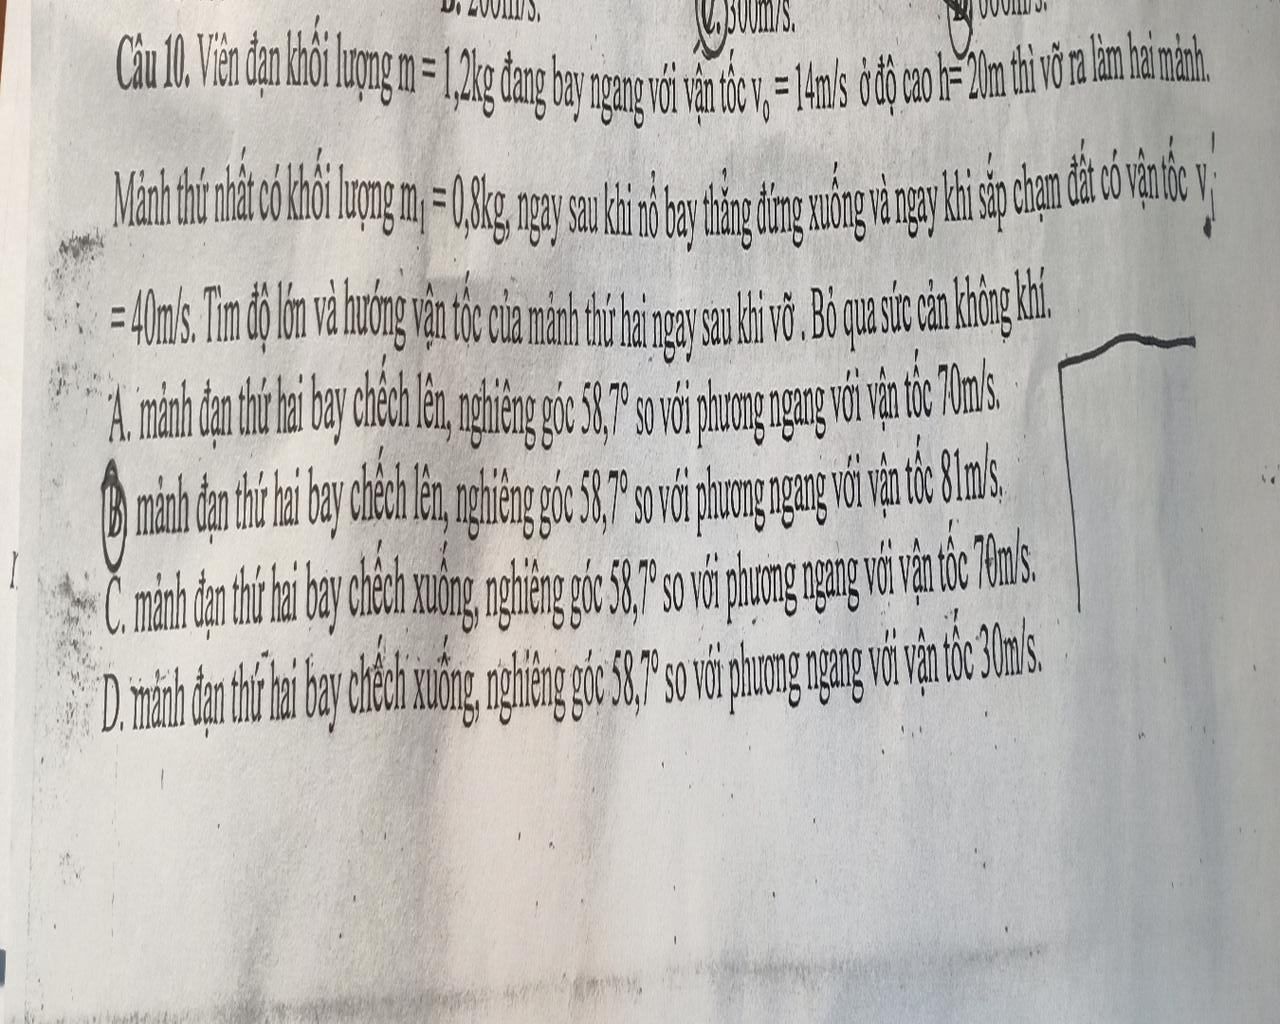 B. 200m/s. C. 300m/s.
Câu 10. Viên đạn khối lượng m = 1,2kg đang bay ngang với vận tốc v₀ = 14m/s ở độ cao h= 20m thì vỡ ra làm hai mảnh.
Mảnh thứ nhất có khối lượng m₁ = 0,8kg, ngay sau khi nổ bay thẳng đứng xuống và ngay khi sắp chạm đất có vận tốc v₁'
= 40m/s. Tìm độ lớn và hướng vận tốc của mảnh thứ hai ngay sau khi vỡ . Bỏ qua sức cản không khí.
A. mảnh đạn thứ hai bay chếch lên, nghiêng góc 58,7° so với phương ngang với vận tốc 70m/s.
B mảnh đạn thứ hai bay chếch lên, nghiêng góc 58,7° so với phương ngang với vận tốc 81m/s.
C. mảnh đạn thứ hai bay chếch xuống, nghiêng góc 58,7° so với phương ngang với vận tốc 70m/s.
D. mảnh đạn thứ hai bay chếch xuống, nghiêng góc 58,7° so với phương ngang với vận tốc 30m/s.